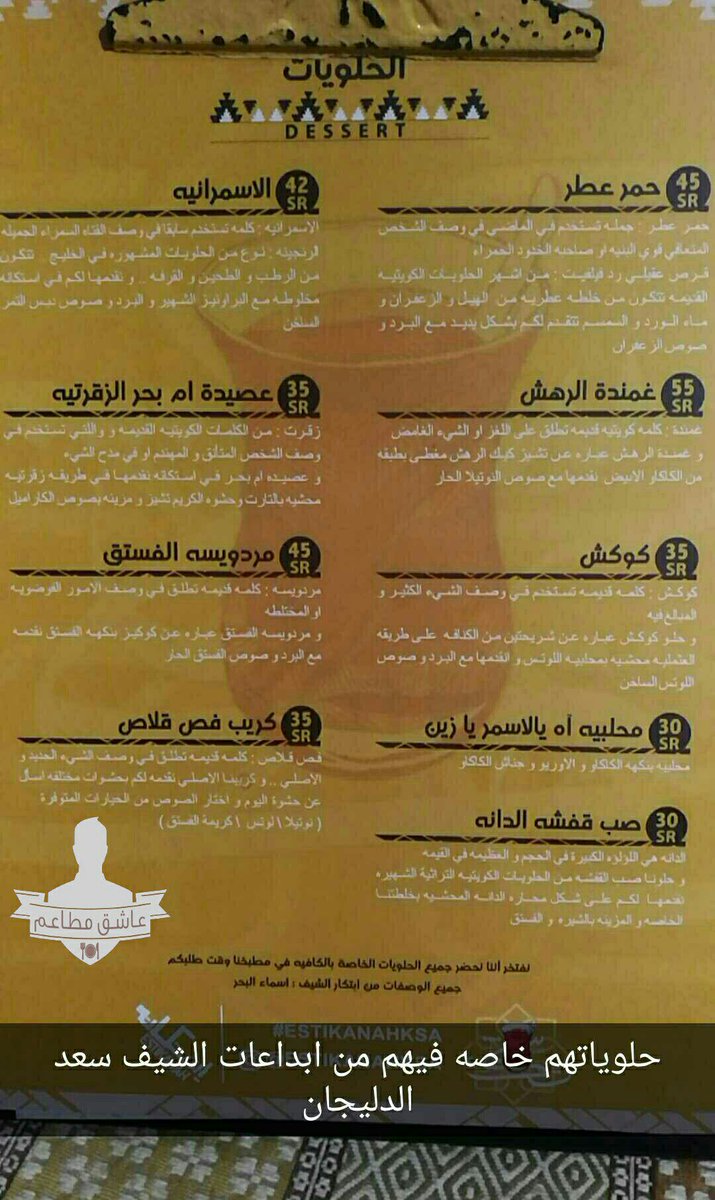 الحلويات
DESSERT
45 SR
حمر عطر
حمر عطر : جمله تستخدم في الماضي في وصف الشخص
المتعافي قوي البنيه او صاحبه الخدود الحمراء
قرص عقيلي رد فيلفيت : من اشهر الحلويات الكويتيه
القديمه تتكون من خلطه عطريه من الهيل و الزعفران و
ماء الورد و السمسم نتقدم لكم بشكل يديد مع البرد و
صوص الزعفران
55 SR
غمندة الرهش
غمندة : كلمه كويتيه قديمه تطلق على اللغز او الشيء الغامض
و غمندة الرهش عباره عن تشيز كيك الرهش مغطى بطبقه
من الكاكار الابيض نقدمها مع صوص النوتيلا الحار
35 SR
كوكش
كوكش : كلمه قديمه تستخدم في وصف الشيء الكثير و
المبالغ فيه
و حلو كوكش عباره عن شريحتين من الكنافه على طريقه
العثمليه محشيه بمحلبيه اللوتس و انقدمها مع البرد و صوص
اللوتس الساخن
30 SR
محلبيه آه يالاسمر يا زين
محلبيه بنكهه الكاكاو و الاوريو و جناش الكاكاو
30 SR
صب قفشه الدانه
الدانه هي اللؤلؤه الكبيرة في الحجم و العظيمه في القيمه
و حلونا صب القفشه من الحلويات الكويتيه التراثية الشهيره
نقدمها لكم على شكل محاره الدانه المحشيه بخلطتنا
الخاصه و المزينه بالشيره و الفستق
42 SR
الاسمرانيه
الاسمرانيه : كلمه تستخدم سابقا في وصف الفتاه السمراء الجميله
الرنجينه : نوع من الحلويات المشهوره في الخليج تتكون
من الرطب و الطحين و القرفه .. و نقدمها لكم في استكانه
مخلوطه مع البراونيز الشهير و البرد و صوص دبس التمر
الساخن
35 SR
عصيدة ام بحر الزقرتيه
زقرت : من الكلمات الكويتيه القديمه و واللتي تستخدم في
وصف الشخص المتأنق و المهندم او في مدح الشيء
و عصيده ام بحر في استكانه نقدمها في طريقه زقرتيه
محشيه بالتارت وحشوه الكريم تشيز و مزينه بصوص الكاراميل
45 SR
مردويسه الفستق
مردويسه : كلمه قديمه تطلق في وصف الامور الفوضويه
او المختلطه
و مردويسه الفستق عباره عن كوكيز بنكهه الفستق نقدمه
مع البرد و صوص الفستق الحار
35 SR
كريب فص قلاص
فص قلاص : كلمه قديمه تطلق في وصف الشيء الجديد و
الاصلي .. و كريبنا الاصلي نقدمه لكم بحشوات مختلفه اسأل
عن حشوة اليوم و اختار الصوص من الخيارات المتوفرة
( نوتيلا \ لوتس \ كريمة الفستق )
عاشق مطاعم
نفتخر أننا نحضر جميع الحلويات الخاصة بالكافيه في مطبخنا وقت طلبكم
جميع الوصفات من ابتكار الشيف : اسماء البحر
#ESTIKANAHKSA
حلوياتهم خاصه فيهم من ابداعات الشيف سعد
الدليجان